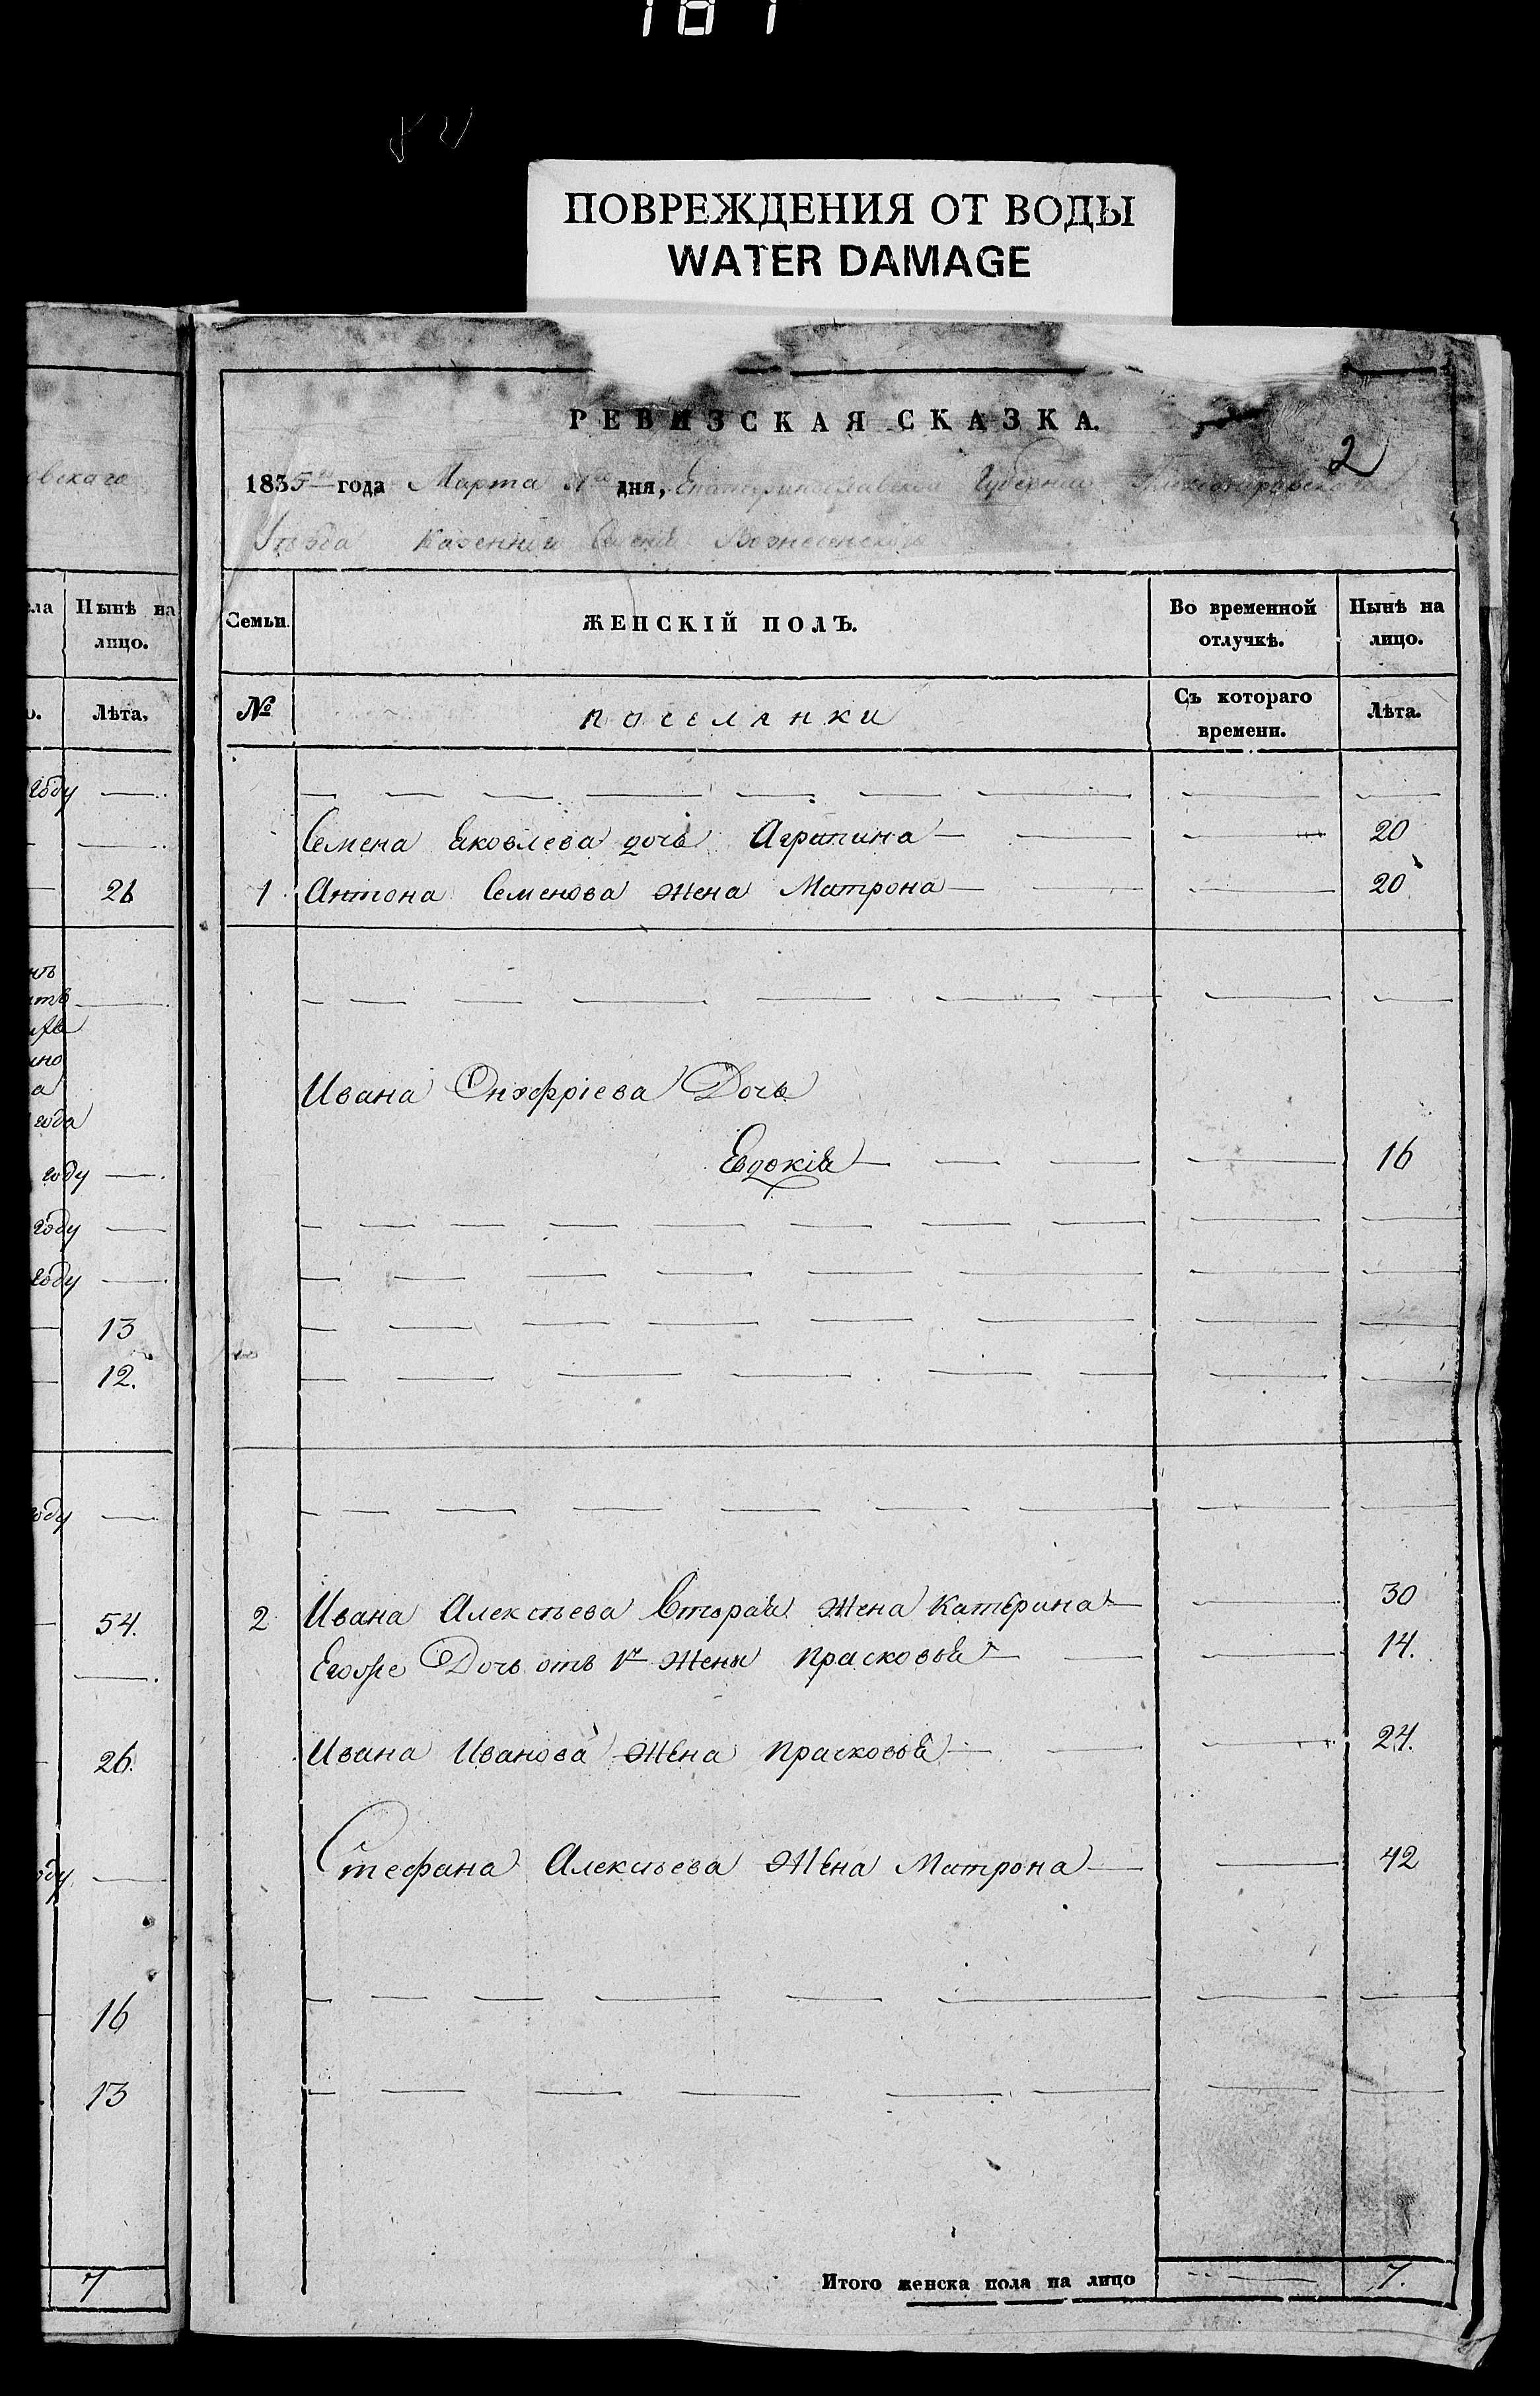 187
ПОВРЕЖДЕНИЯ ОТ ВОДЫ
WATER DAMAGE
РЕВИЗСКАЯ СКАЗКА.
2
1835 года Марта дня, Екатеринославской Губернии Александровскаго
Уезда Казеннаго Селенія Вознесенскаго
овскаго
ела
Нынѣ на
лицо.
Лѣта,
году
26
нъ
ить
ино
а
года
году
году
году
13
12.
году
54.
26.
оду
16
13
7
Семьи.
ЖЕНСКІЙ ПОЛЪ.
Во временной
отлучкѣ.
Нынѣ на
лицо.
№
поселянки
Съ котораго
времени.
Лѣта.
Семена Яковлева дочь Агрипина 20
1 Антона Семенова жена Матрона 20
Ивана Онуфріева Дочь
Евдокія 16
2 Ивана Алексѣева Вторая жена Катерина 30
Егоже Дочь отъ 1й жены Прасковья 14.
Ивана Иванова жена Прасковья 24.
Стефана Алексѣева жена Матрона 42
Итого женска пола на лицо 7.